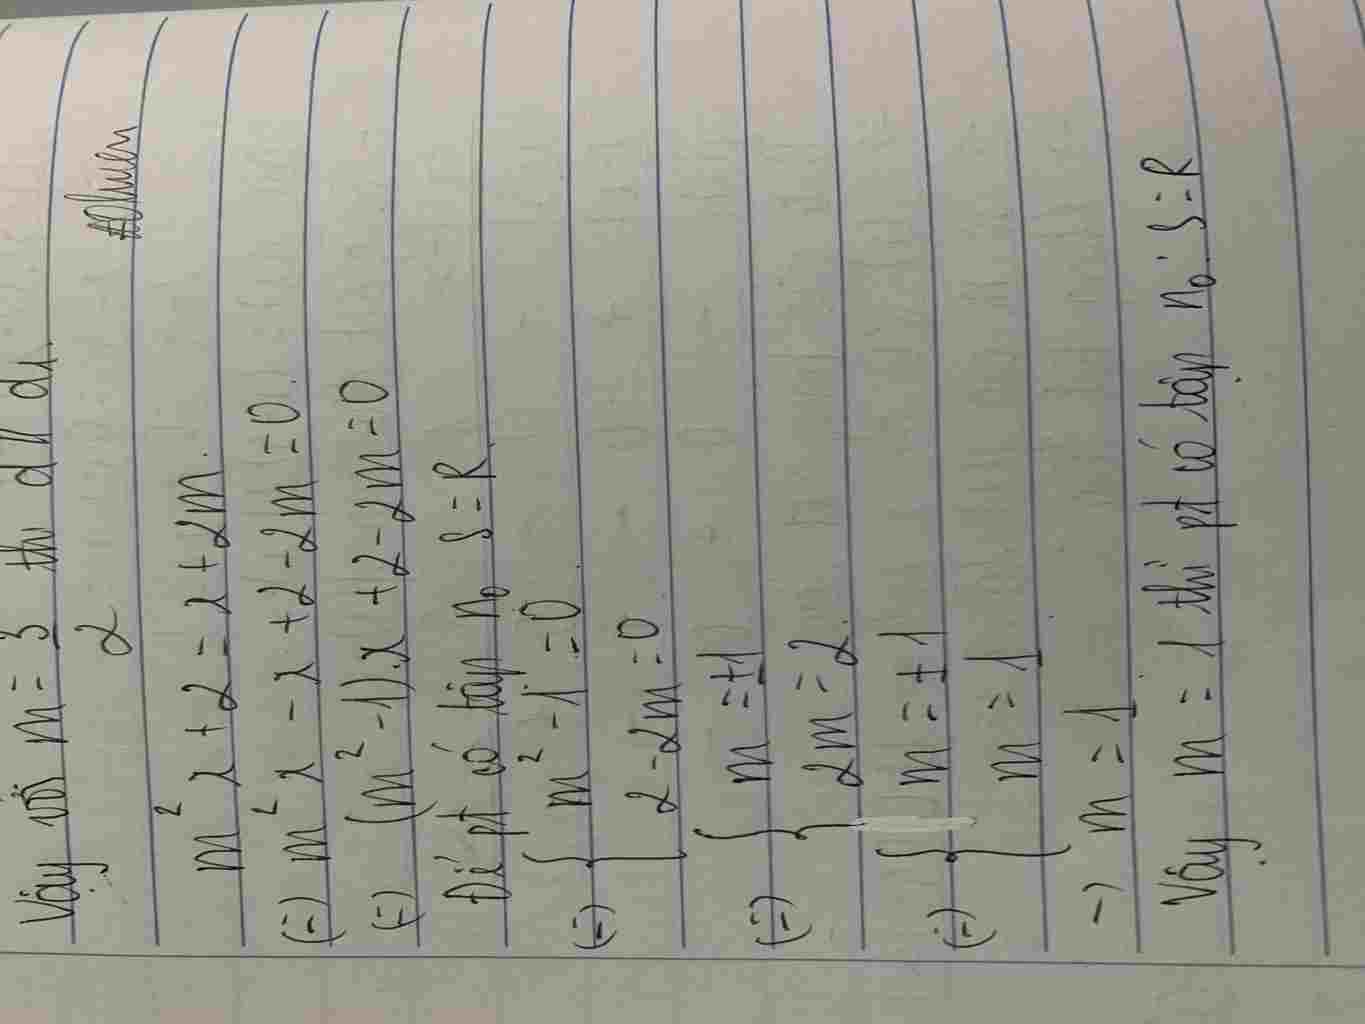 Vậy với m = 3/2 thì
m²x + 2 = x + 2m.
(=) m²x - x + 2 - 2m = 0.
(=) (m² - 1).x + 2 - 2m = 0
Để pt có tập n₀ S = R
(=) { m² - 1 = 0
2 - 2m = 0
(=) { m = ±1
2m = 2
(=) { m = ±1
m = 1
-) m = 1
Vậy m = 1 thì pt có tập n₀ : S = R